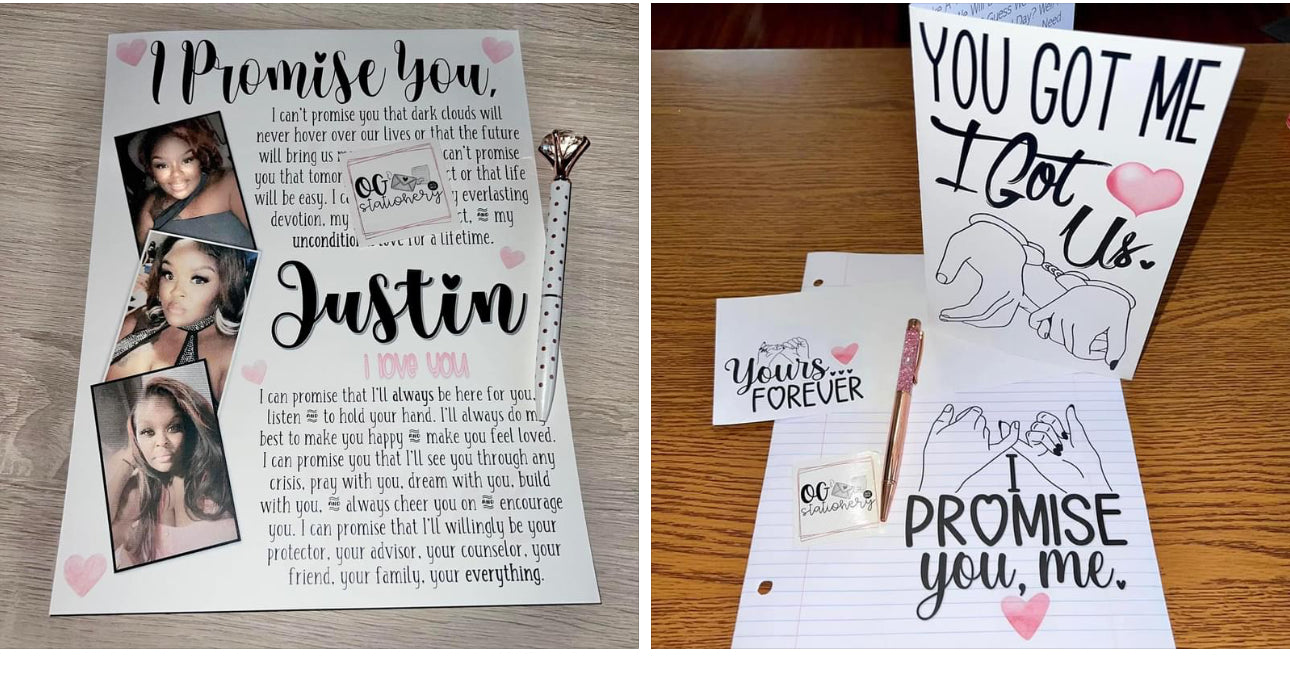 I Promise You,
I can't promise you that dark clouds will
never hover over our lives or that the future
will bring us can't promise
you that tomor or that life
will be easy. I everlasting
devotion, my AND my
love for a lifetime.
OG
stationery
Justin
I love you
I can promise that I'll always be here for you,
listen AND to hold your hand. I'll always do my
best to make you happy AND make you feel loved.
I can promise you that I'll see you through any
crisis, pray with you, dream with you, build
with you, AND always cheer you on AND encourage
you. I can promise that I'll willingly be your
protector, your advisor, your counselor, your
friend, your family, your everything.
YOU GOT ME
I Got
Us.
Yours...
FOREVER
OG
stationery
I
PROMISE
you, me.